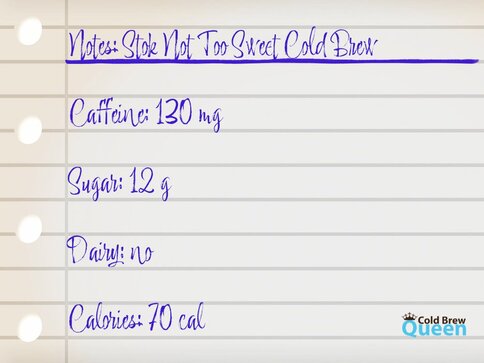 Notes: Stok Not Too Sweet Cold Brew
Caffeine: 130 mg
Sugar: 12 g
Dairy: no
Calories: 70 cal
Cold Brew
Queen